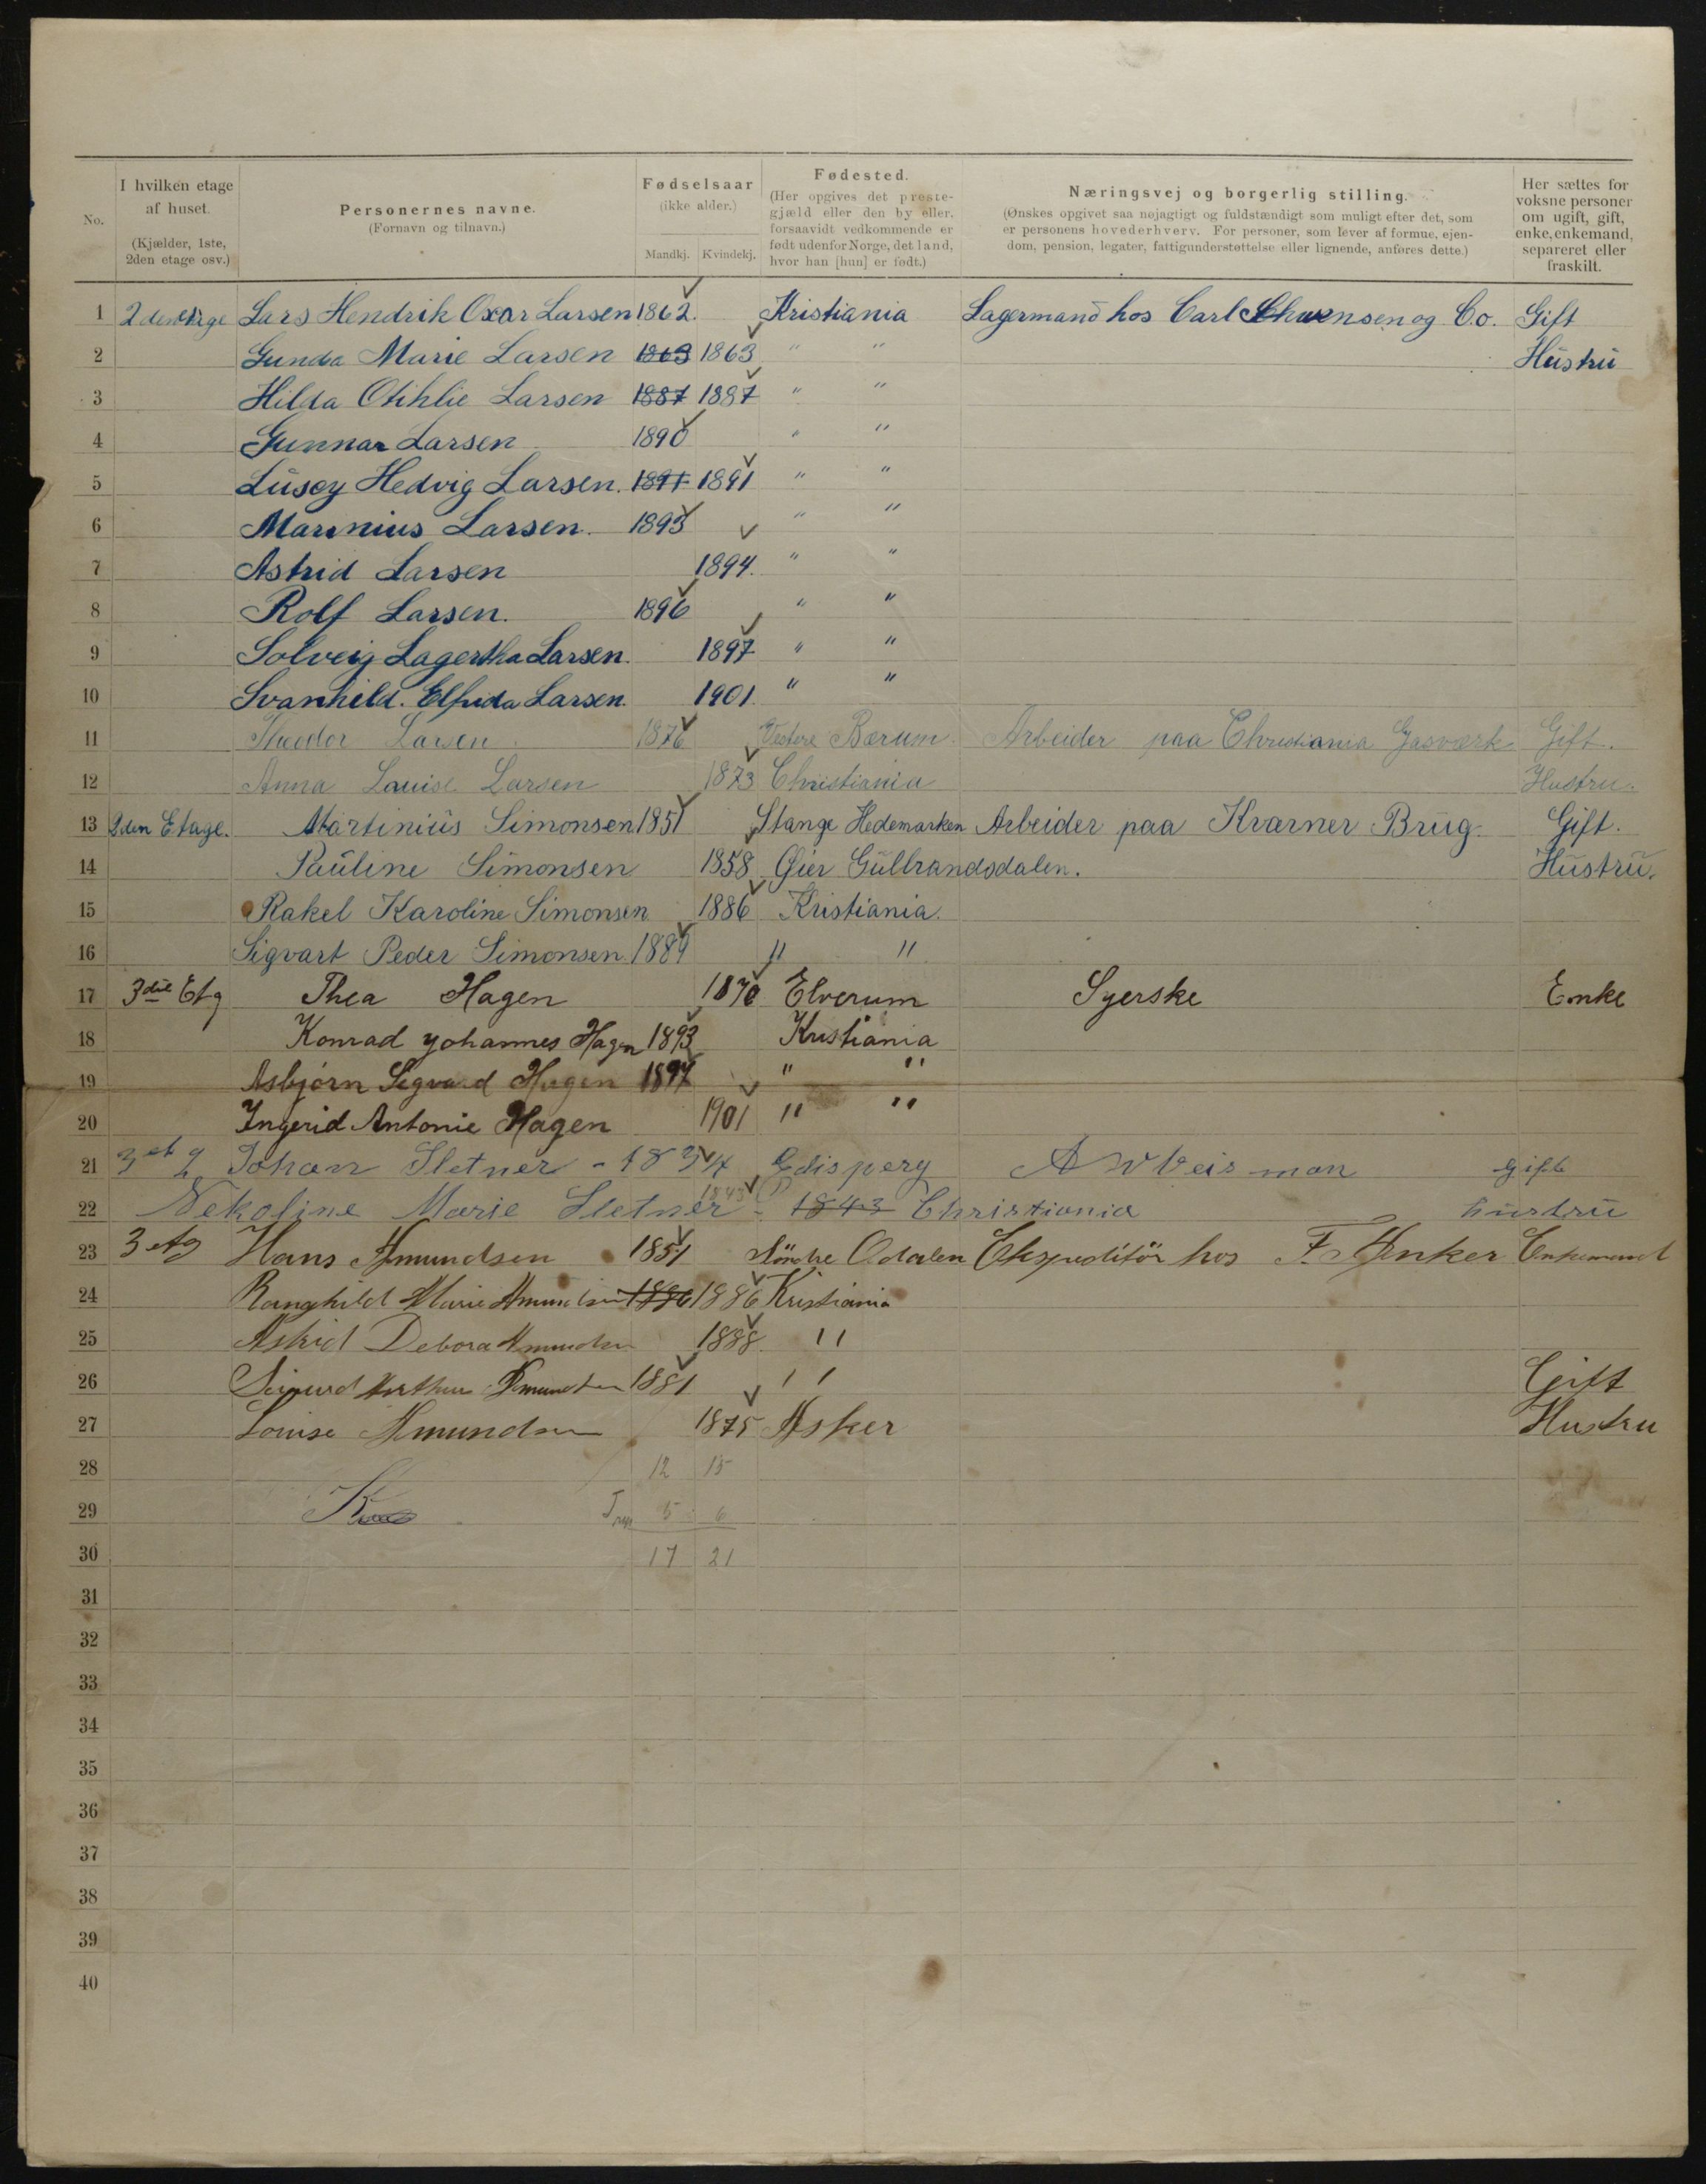 No. I hvilken etage af huset. (Kjælder, 1ste, 2den etage osv.) Personernes navne. (Fornavn og tilnavn.) Fødselsaar (ikke alder.) Mandkj. Kvindekj. Fødested. (Her opgives det prestegjæld eller den by eller, forsaavidt vedkommende er født udenfor Norge, det land, hvor han [hun] er født.) Næringsvej og borgerlig stilling. (Ønskes opgivet saa nøjagtigt og fuldstændigt som muligt efter det, som er personens hovederhverv. For personer, som lever af formue, ejendom, pension, legater, fattigunderstøttelse eller lignende, anføres dette.) Her sættes for voksne personer om ugift, gift, enke, enkemand, separeret eller fraskilt.
1 2den etage Lars Hendrik Oscar Larsen 1862. Kristiania Lagermand hos Carl og Co. Gift
2 Gunda Marie Larsen 1863 1863 " " Hustru
3 Hilda Otihlie Larsen 1887 1887 " "
4 Gunnar Larsen 1890 " "
5 Lusey Hedvig Larsen. 1891 1891 " "
6 Marinius Larsen. 1893 " "
7 Astrid Larsen 1894. " "
8 Rolf Larsen. 1896 " "
9 Solveig Lagertha Larsen. 1897 " "
10 Svanhild. Elfrida Larsen. 1901. " "
11 Theodor Larsen 1876 Vestere Bærum. Arbeider paa Christiania Gasværk Gift.
12 Anna Louise Larsen 1873 Christiania Hustru.
13 2den Etage. Martinius Simonsen 1851 Stange Hedemarken Arbeider paa Kværner Brug. Gift.
14 Pauline Simonsen 1858 Øier Gulbrandsdalen. Hustru.
15 Rakel Karoline Simonsen 1886 Kristiania.
16 Sigvart Peder Simonsen. 1889 " "
17 3die Etg Thea Hagen 1870 Elverum Syerske Enke
18 Konrad Yohannes Hagen 1893 Kristiania
19 Asbjørn Sigvard Hagen 1897 " "
20 Yngerid Antonie Hagen 1901 " "
21 3 etg Johan Sletner - 1834 Edisperg Arbeisman gift
22 Nekoline Marie Sletner - 1843 1843 Christiania hustru
23 3 etg Hans Amundsen 1851 Söndre Odalen Ekspeditör hos F. Anker Enkemand
24 Ranghild Marie Amundsen 1886 1886 Kristiania
25 Astrid Debora Amundsen 1888 "
26 Sigurd Arthur Amundsen 1881 " Gift
27 Louise Amundsen 1875 Asker Hustru
28 12 15
29 5 6
30 17 21
31
32
33
34
35
36
37
38
39
40